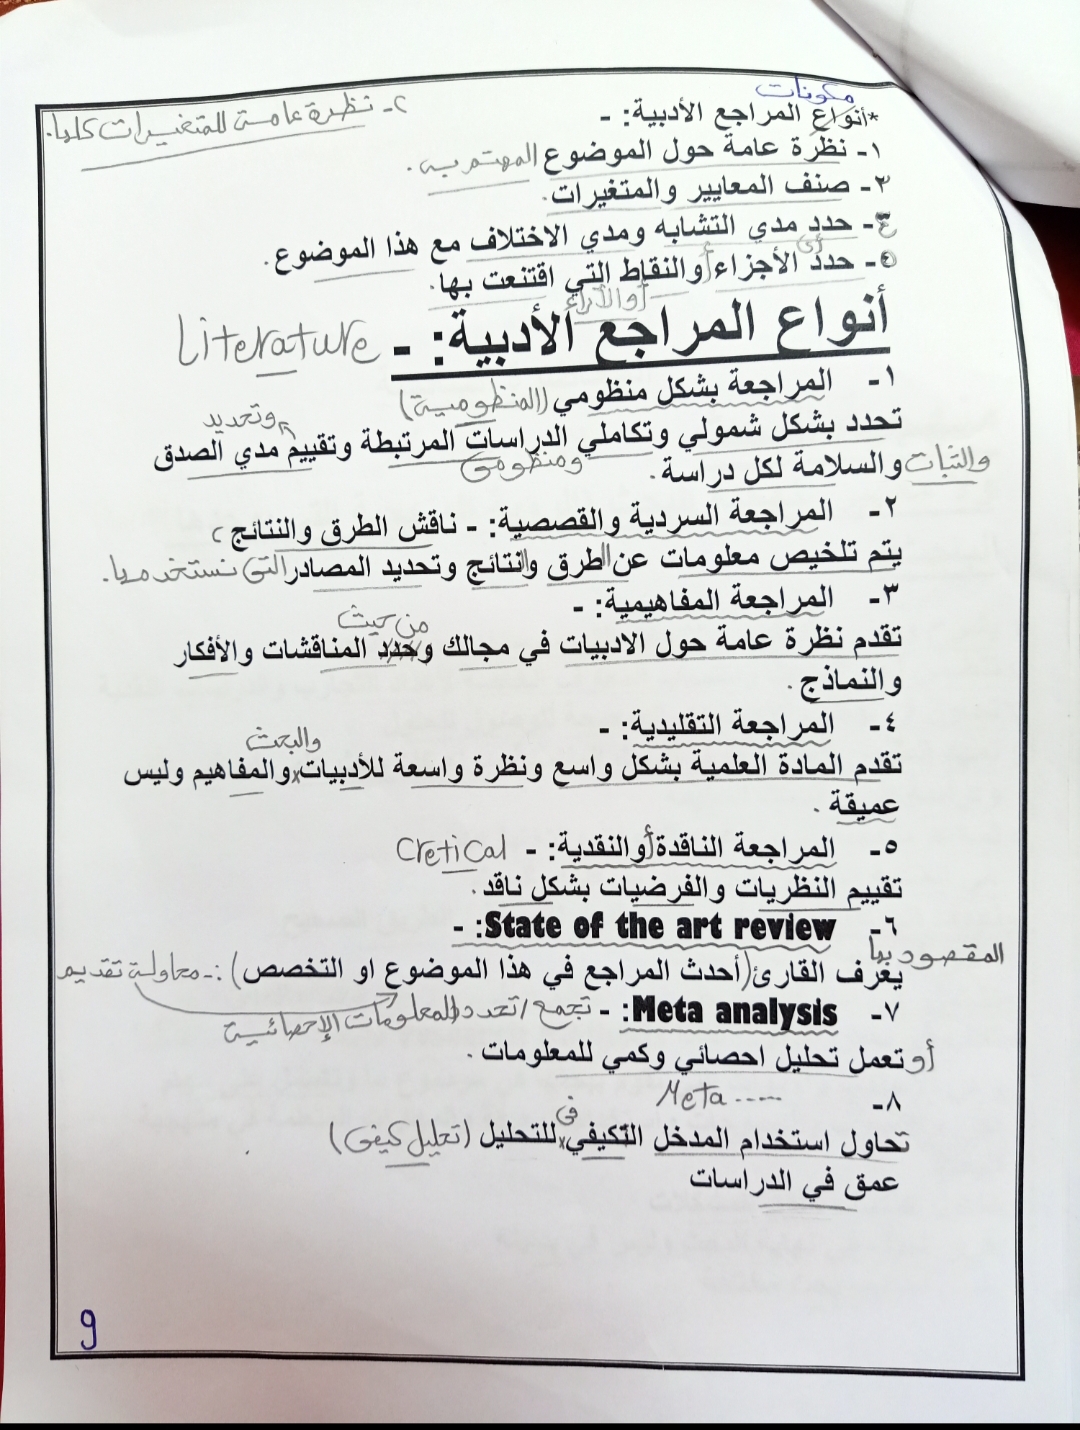 مكونات
*أنواع المراجع الأدبية: -
١- نظرة عامة حول الموضوع المهتم به.
٢- نظرة عامة للمتغيرات كلها.
٣- صنف المعايير والمتغيرات.
٤- حدد مدي التشابه ومدي الاختلاف مع هذا الموضوع.
أي
٥- حدد الأجزاء أو النقاط التي اقتنعت بها.
أو الآراء
أنواع المراجع الأدبية: - Literature
١- المراجعة بشكل منظومي (المنظومية)
وتحديد
تحدد بشكل شمولي وتكاملي الدراسات المرتبطة وتقييم مدي الصدق
ومنظومى
والثبات والسلامة لكل دراسة.
٢- المراجعة السردية والقصصية: - ناقش الطرق والنتائج،
يتم تلخيص معلومات عن الطرق والنتائج وتحديد المصادر التى نستخدمها.
٣- المراجعة المفاهيمية: -
من حيث
تقدم نظرة عامة حول الادبيات في مجالك وحدد المناقشات والأفكار
والنماذج.
٤- المراجعة التقليدية: -
والبحث
تقدم المادة العلمية بشكل واسع ونظرة واسعة للأدبيات والمفاهيم وليس
عميقة.
٥- المراجعة الناقدة أو النقدية: - Cretical
تقييم النظريات والفرضيات بشكل ناقد.
٦- State of the art review: -
المقصود بها
يعرف القارئ (أحدث المراجع في هذا الموضوع او التخصص) :- محاولة تقديم
٧- Meta analysis: - تجمع / تحدد المعلومات الإحصائية
أو تعمل تحليل احصائي وكمي للمعلومات.
٨- Meta .....
فى
تحاول استخدام المدخل التكيفي للتحليل (تحليل كيفى)
عمق في الدراسات
9